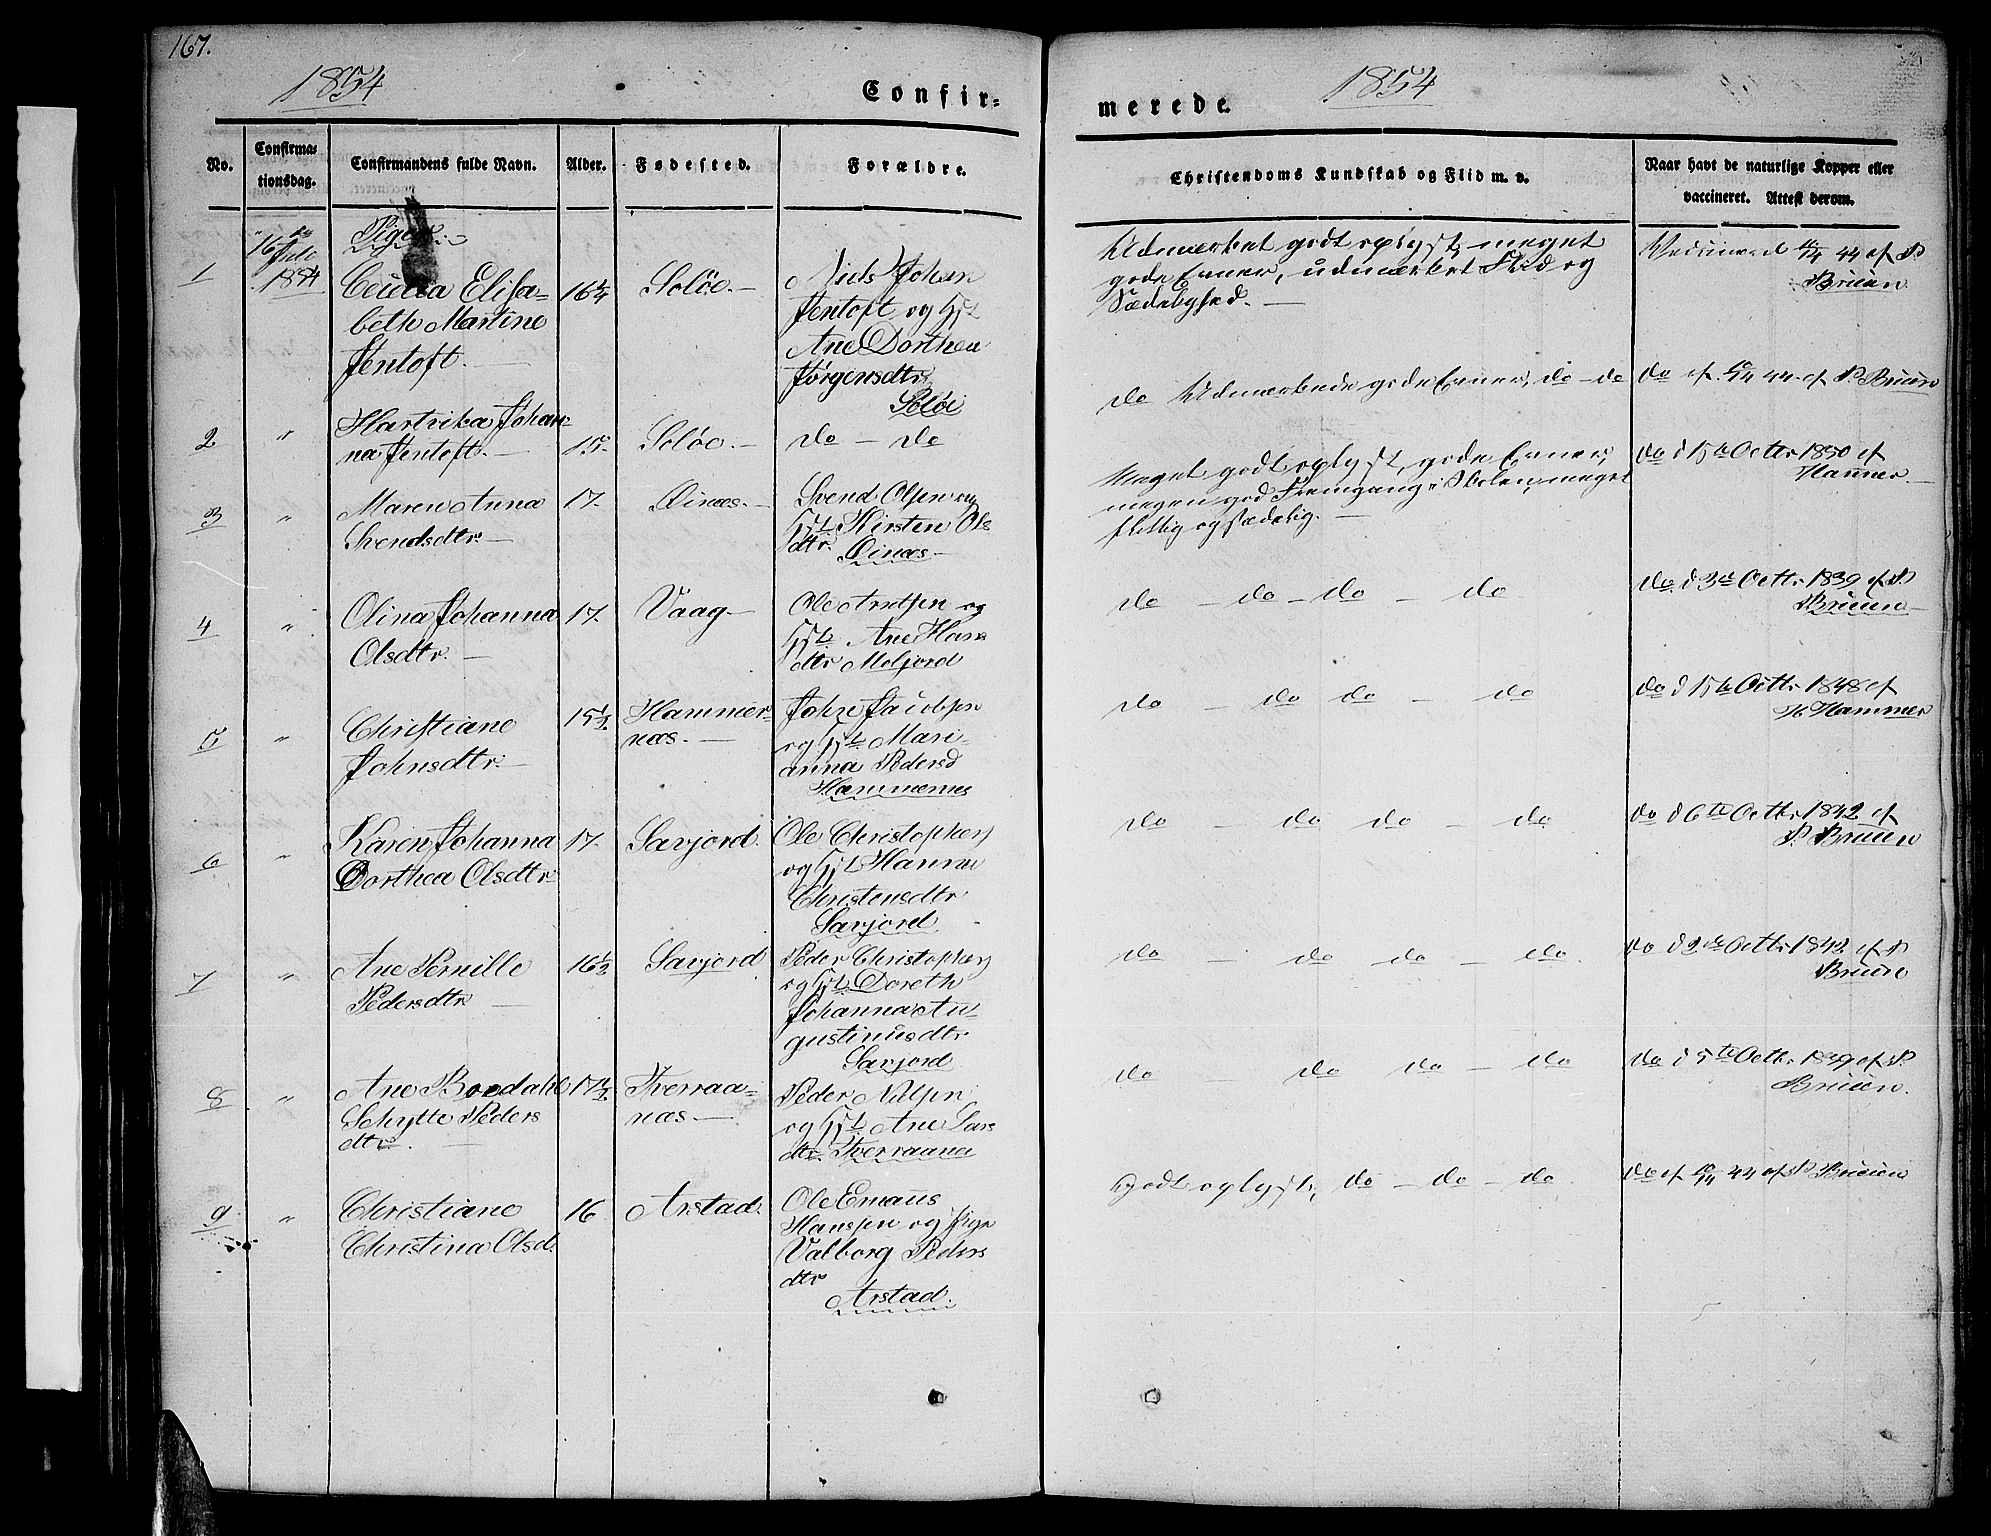 167.
1854
Confir-
merede.
1854
No.
Confirma-
tionsdag.
Confirmandens fulde Navn.
Alder.
Fødested.
Forældre.
Christendoms Kundskab og Flid m. v.
Naar havt de naturlige Kopper eller
vaccineret. Attest derom.
Piger.
1
16de
Juli
1854
Cecilia Elisa-
beth Martine
Jentoft.
16 1/4
Soløe.
Niels Johan
Jentoft og Hst
Ane Dorthea
Jørgensdtr
Soløe
Udmærket godt oplyst, meget
gode Evner, udmærket Flid og
Sædelighed.
Vaccineret 10/4 44 af P
Brüün
2
"
Hartvika Johan-
na Jentoft.
15.
Soløe.
do - do
do Udmærkede gode Evner, do - do
do af 10/4 44 af P. Brüün
3
"
Maren Anna
Svendsdtr.
17.
Øinæs.
Svend Olsen og
Hst. Kirsten Ols
dtr. Øinæs
Meget godt oplyst, gode Evner,
megen god Fremgang i Skolen, meget
flittig og sædelig.
do d 15de Octbr 1850 af
Hammer.
4
"
Olina Johanna
Olsdtr.
17.
Vaag
Ole Arntsen og
Hst. Ane Hans
dtr Meljord
do - do - do - do
do. d 3de Octbr 1839 af P
Brüün
5
"
Christiane
Johnsdtr.
15 1/2
Hammer-
næs.
John Jacobsen
og Hst. Mari-
anna Pedersd
Hammernes
do - do do - do
do d 15de Octbr 1848 af
H Hammer
6
"
Karen Johanna
Dorthea Olsdtr
17.
Savjord.
Ole Christophers
og Hst Hanna
Christensdtr
Savjord
do - do do - do
do d 6te Octbr 1842 af
P. Brüün
7
"
Ane Pernille
Pedersdtr
16 1/2
Savjord
Peder Christophers
og Hst Doreth
Johanna Au-
gustinusdtr
Savjord
do - do do - do.
do d 2de Octbr 1842 af P
Brüün
8
"
Ane Bordahl
Schytte Peders
dtr.
17 1/2
Tverraa-
næs
Peder Nilsen
og Hst. Ane Lars
dtr. Tverraanæ
do - do do - do
do d 5te Octbr 1839 af P.
Brüün.
9
"
Christiane
Christina Olsd.
16
Arstad.
Ole Emaus
Hanssen og Pige
Valborg Peders
dtr
Arstad.
Godt oplyst, do - do - do
do af 10/4 44 af P Brüün